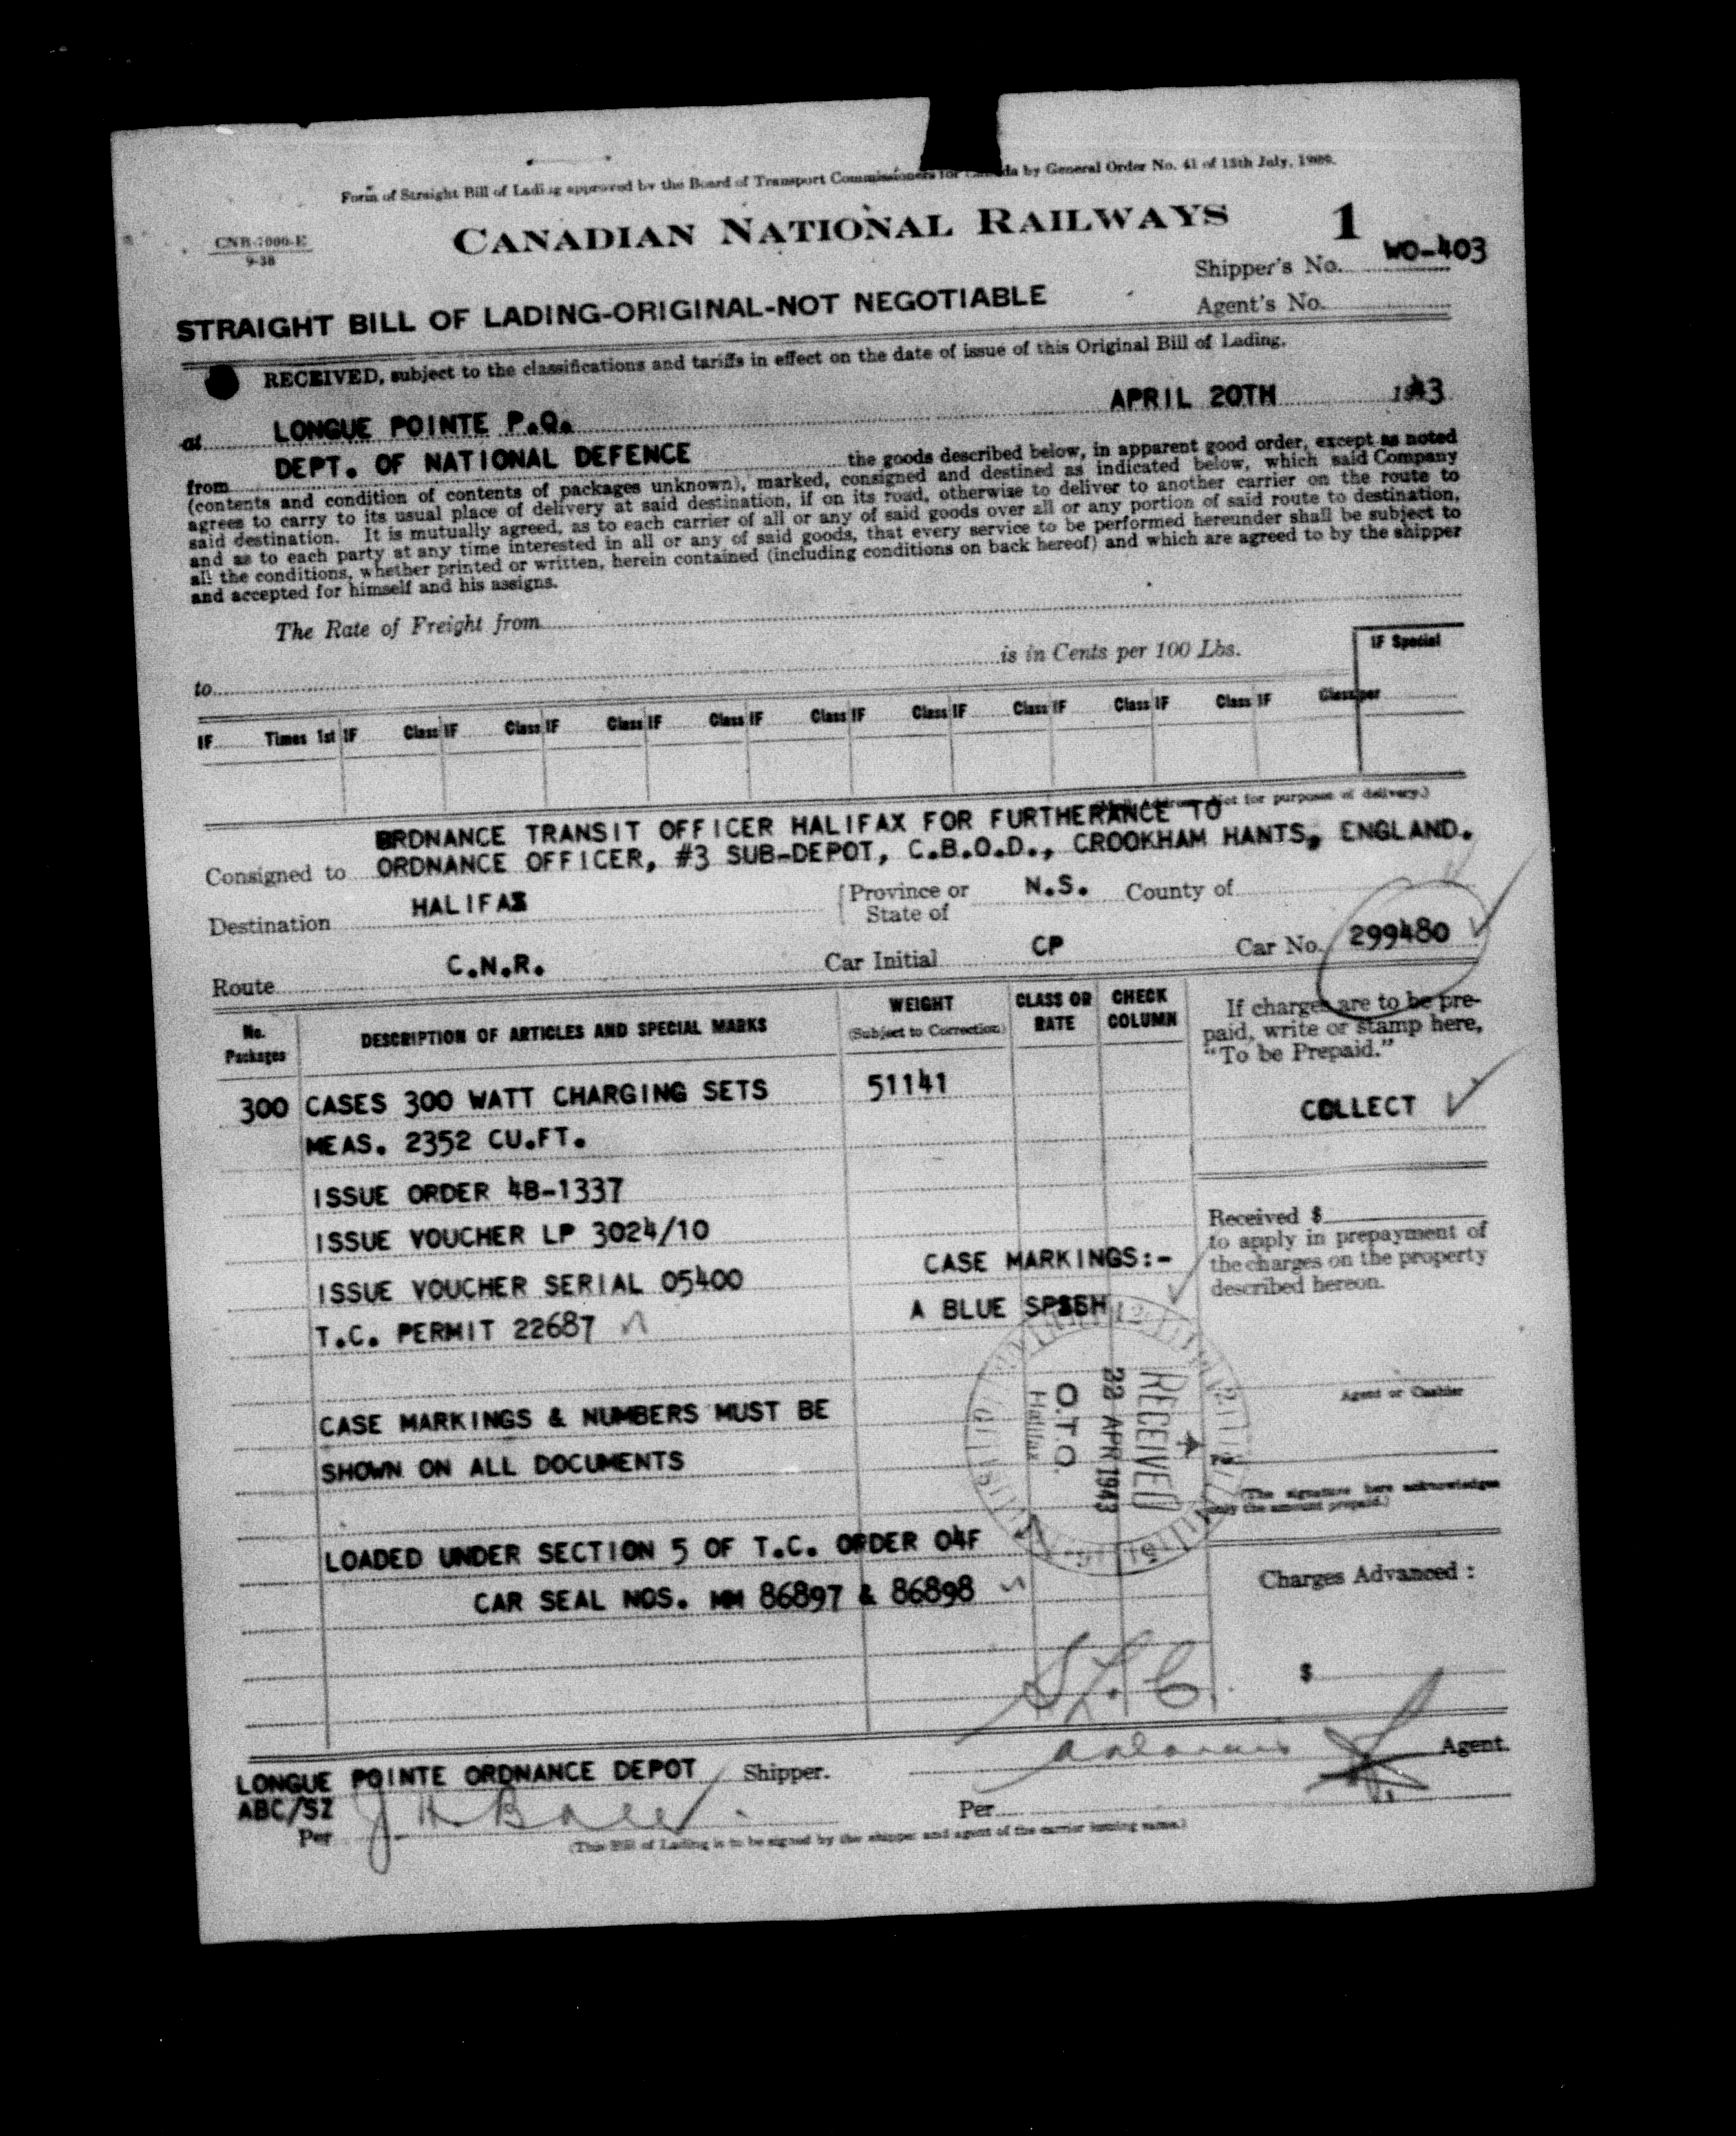 Form of Straight Bill of Lading approved by the Board of Transport Commissioners for Canada by General Order No. 41 of 15th July, 1909.
CNR-7000-E
9-38
CANADIAN NATIONAL RAILWAYS 1
Shipper's No. WO-403
STRAIGHT BILL OF LADING-ORIGINAL-NOT NEGOTIABLE
Agent's No.
RECEIVED, subject to the classifications and tariffs in effect on the date of issue of this Original Bill of Lading.
APRIL 20TH 1943
at LONGUE POINTE P.Q.
from DEPT. OF NATIONAL DEFENCE the goods described below, in apparent good order, except as noted
(contents and condition of contents of packages unknown), marked, consigned and destined as indicated below, which said Company
agrees to carry to its usual place of delivery at said destination, if on its road, otherwise to deliver to another carrier on the route to
said destination. It is mutually agreed, as to each carrier of all or any of said goods over all or any portion of said route to destination,
and as to each party at any time interested in all or any of said goods, that every service to be performed hereunder shall be subject to
all the conditions, whether printed or written, herein contained (including conditions on back hereof) and which are agreed to by the shipper
and accepted for himself and his assigns.
The Rate of Freight from
to is in Cents per 100 Lbs.
IF Special
IF Times 1st IF Class IF Class IF Class IF Class IF Class IF Class IF Class IF Class IF Class IF Class per
not for purposes of delivery.)
ORDNANCE TRANSIT OFFICER HALIFAX FOR FURTHERANCE TO
Consigned to ORDNANCE OFFICER, #3 SUB-DEPOT, C.B.O.D., CROOKHAM HANTS, ENGLAND.
Destination HALIFAX Province or State of N.S. County of
Route C.N.R. Car Initial CP Car No. 299480
No. Packages DESCRIPTION OF ARTICLES AND SPECIAL MARKS WEIGHT (Subject to Correction) CLASS OR RATE CHECK COLUMN
If charges are to be pre-
paid, write or stamp here,
"To be Prepaid."
300 CASES 300 WATT CHARGING SETS 51141
COLLECT
MEAS. 2352 CU.FT.
ISSUE ORDER 4B-1337
ISSUE VOUCHER LP 3024/10
Received $
to apply in prepayment of
the charges on the property
described hereon.
CASE MARKINGS:-
ISSUE VOUCHER SERIAL 05400
A BLUE
T.C. PERMIT 22687
RECEIVED
22 APR 1943
O.T.O.
Halifax
Agent or Cashier
CASE MARKINGS & NUMBERS MUST BE
SHOWN ON ALL DOCUMENTS
Per
(The signature here acknowledges
only the amount prepaid.)
LOADED UNDER SECTION 5 OF T.C. ORDER 04F
CAR SEAL NOS. MM 86897 & 86898
Charges Advanced :
$
S.L.C.
LONGUE POINTE ORDNANCE DEPOT Shipper. Agent.
ABC/SZ
Per Per
(This Bill of Lading is to be signed by the shipper and agent of the carrier issuing same.)